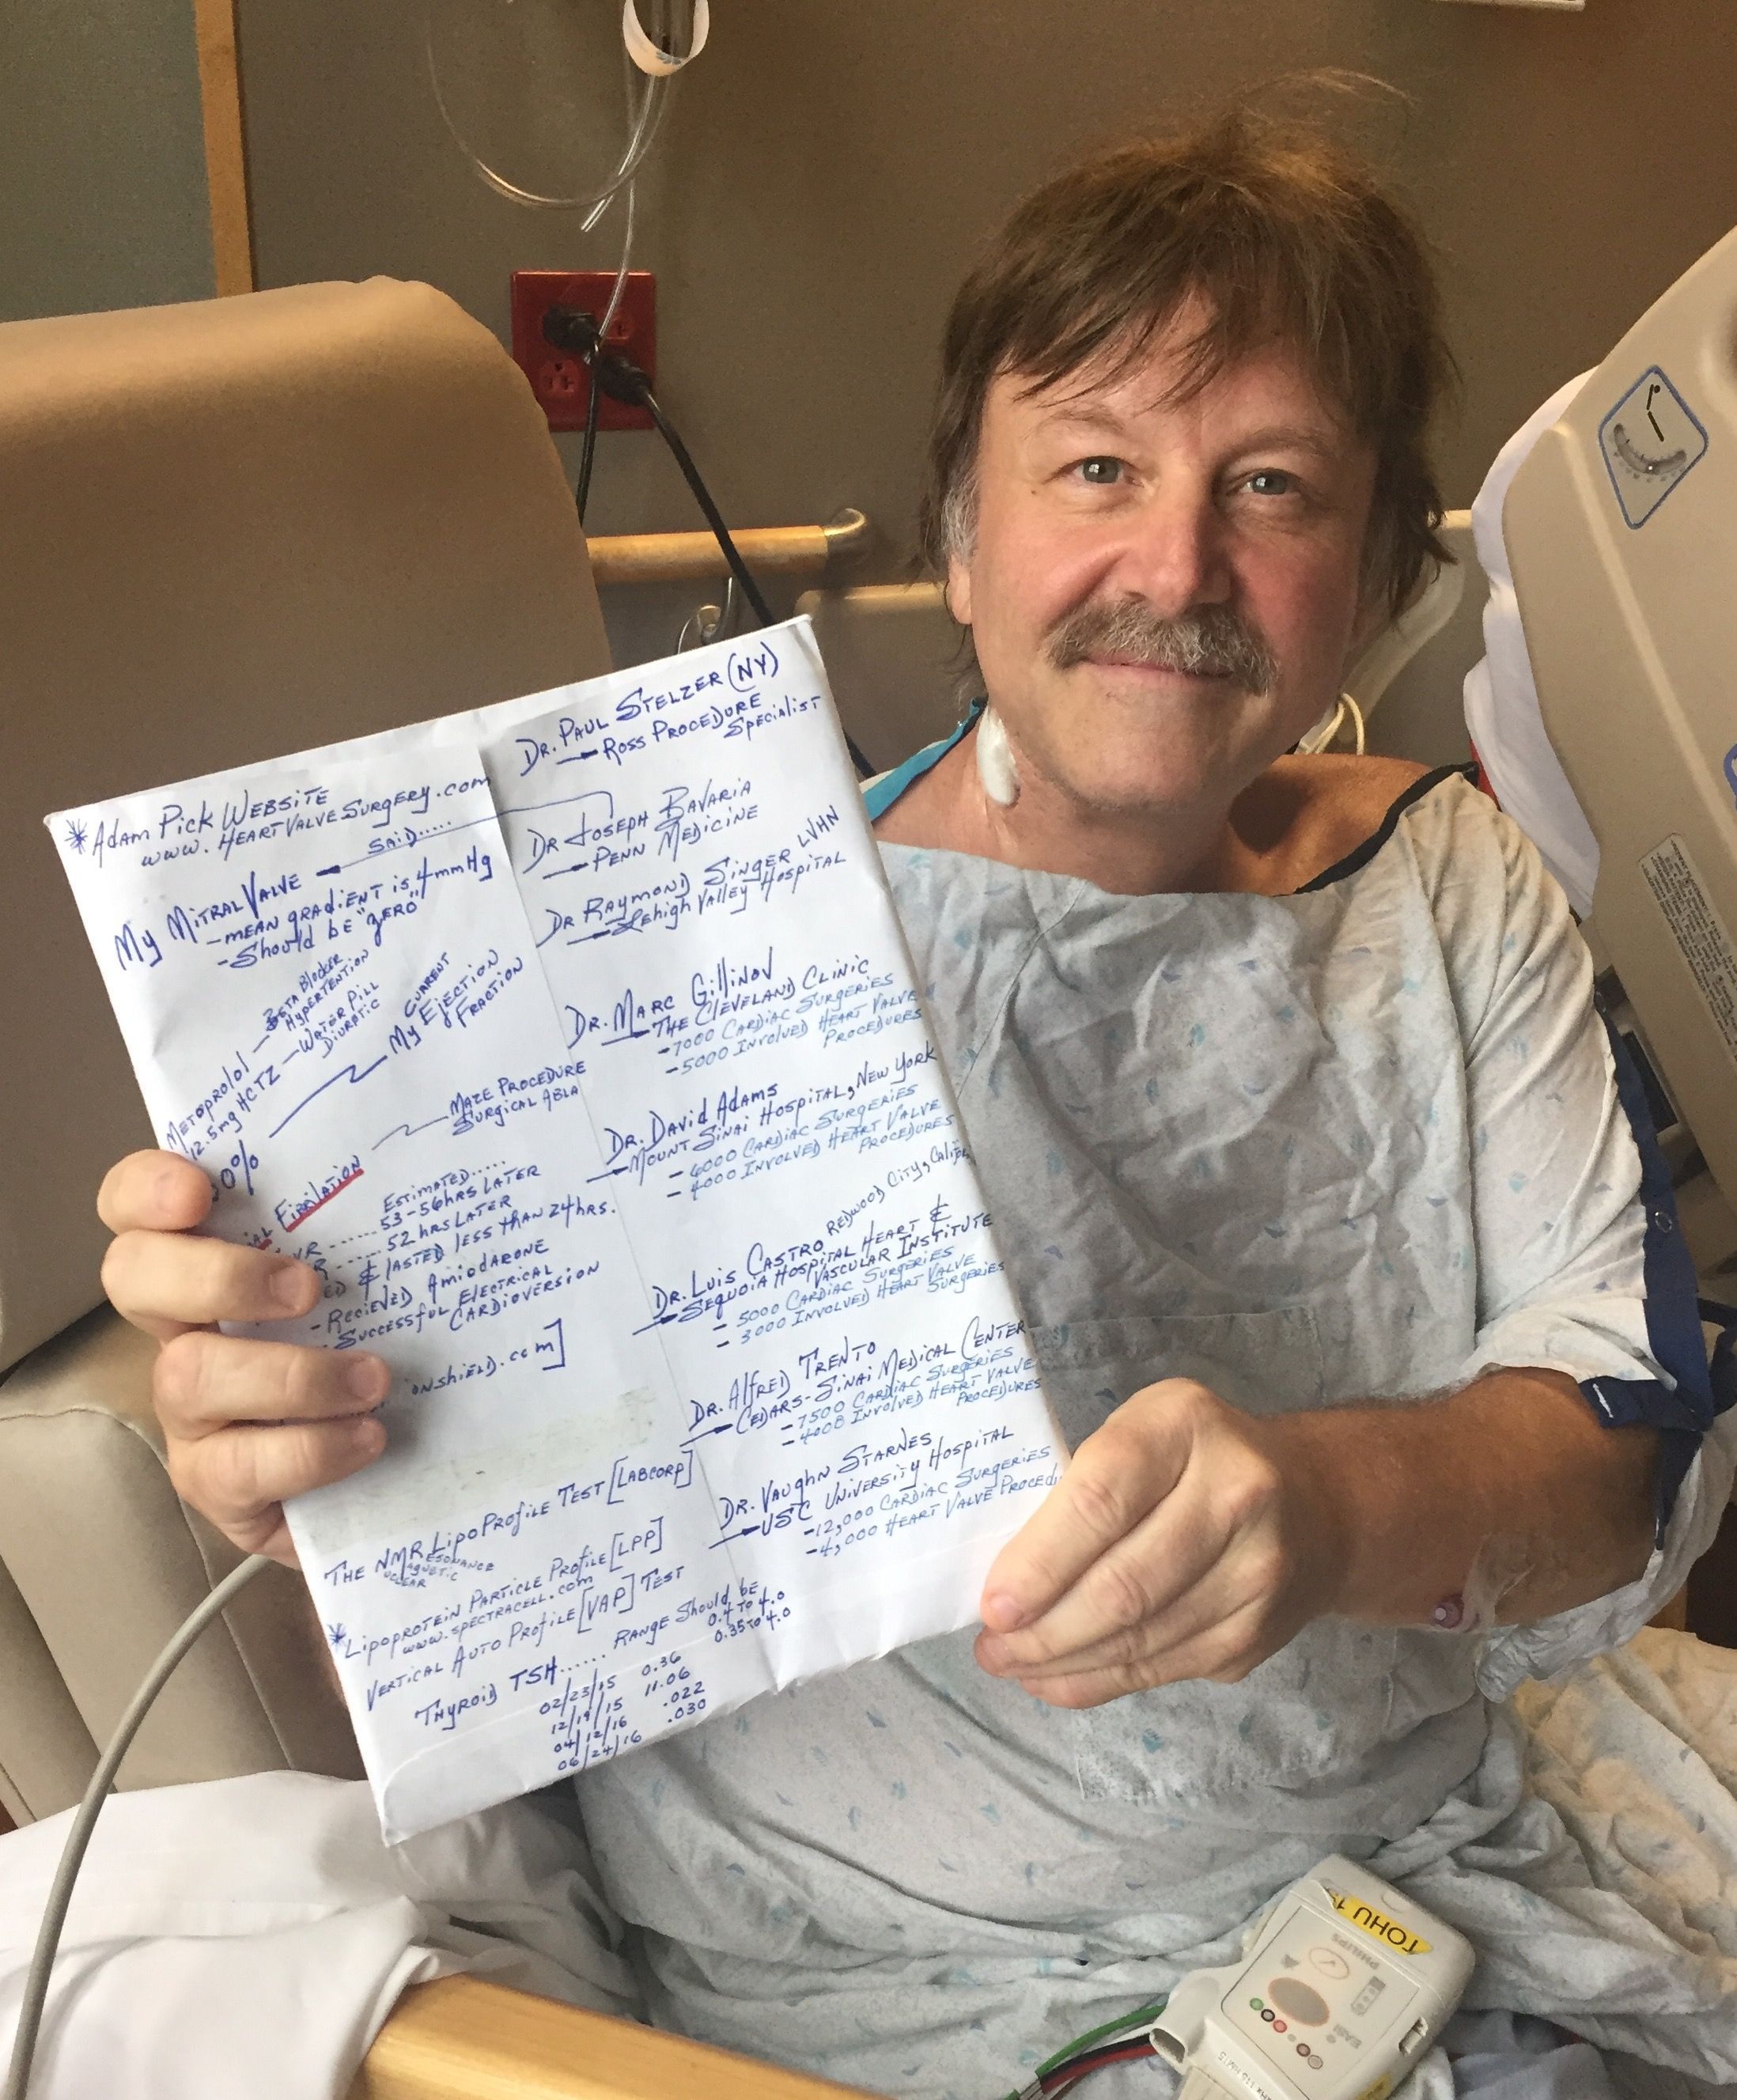 * Adam Pick Website
www.HeartValveSurgery.com
SAID.....
My Mitral Valve
- mean gradient is 4mmHg
- Should be "zero"
Metoprolol — Beta Blocker
Hypertention
12.5mg HCTZ — Water Pill
Diuretic
0%
My Current
Ejection
Fraction
Maze Procedure
Surgical Abla
Fibrilation
Estimated.....
53-56hrs Later
52 hrs Later
& lasted less than 24hrs.
- Recieved Amiodarone
- Successful Electrical
Cardioversion
onshield.com]
The NMR LipoProfile Test [LabCorp]
Resonance
Magnetic
* Lipoprotein Particle Profile [LPP]
www.spectracell.com
Vertical Auto Profile [VAP] Test
Thyroid TSH...... Range Should be
0.4 to 4.0
0.35 to 4.0
02/23/15 0.36
12/19/15 11.06
04/12/16 .022
06/24/16 .030
Dr. Paul Stelzer (NY)
Ross Procedure
Specialist
Dr Joseph Bavaria
Penn Medicine
Dr Raymond Singer LVHN
Lehigh Valley Hospital
Dr. Marc Gillinov
The Cleveland Clinic
- 7000 Cardiac Surgeries
- 5000 Involved Heart Valve
Procedures
Dr. David Adams
Mount Sinai Hospital, New York
- 6000 Cardiac Surgeries
- 4000 Involved Heart Valve
Procedures
Dr. Luis Castro Redwood City, Calif.
Sequoia Hospital Heart &
Vascular Institute
- 5000 Cardiac Surgeries
- 3000 Involved Heart Valve
Surgeries
Dr. Alfred Trento
Cedars-Sinai Medical Center
- 7500 Cardiac Surgeries
- 4008 Involved Heart Valve
Procedures
Dr. Vaughn Starnes
USC University Hospital
- 12,000 Cardiac Surgeries
- 4,000 Heart Valve Procedu
TOHU
PHILIPS
EASI